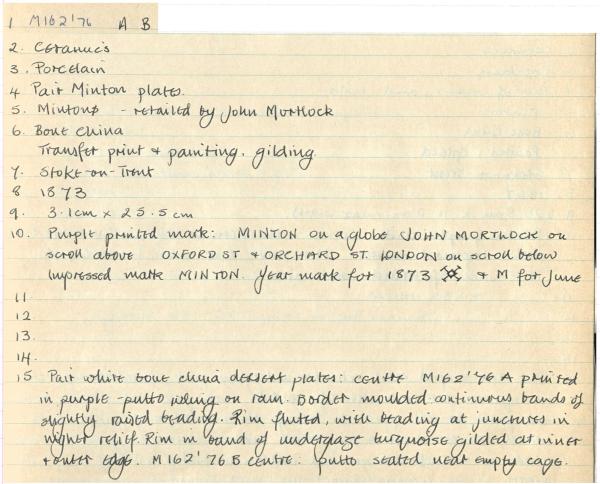 1 M162'76 A B
2. Ceramics
3. Porcelain
4 Pair Minton plates.
5. Mintons - retailed by John Mortlock
6. Bone China
Transfer print & painting, gilding.
7. Stoke-on-Trent
8 1873
9. 3.1cm x 25.5cm
10. Purple printed mark: MINTON on a globe JOHN MORTLOCK on
scroll above OXFORD ST & ORCHARD ST. LONDON on scroll below
Impressed mark MINTON. Year mark for 1873 & M for June
11.
12
13.
14.
15 Pair white bone china dessert plates: centre M162'76 A printed
in purple - putto riding on ram. Border moulded continuous bands of
slightly raised beading. Rim fluted, with beading at junctures in
higher relief. Rim in band of underglaze turquoise gilded at inner
& outer edge. M162'76 B centre: putto seated near empty cage.